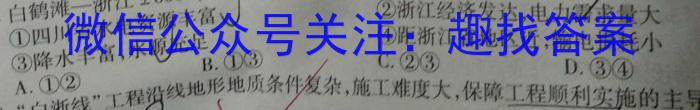 白鹤滩—浙江
①四川 资源丰富 ②浙江经济发达,电力需求量大
微信公众号关注:趣找答案
③降水丰富, ④距浙江 小
A. ①② B. ①③ C. ②③ D. ③④
"白浙线"工程沿线地形地质条件复杂,施工难度大,保障工程顺利实施的主